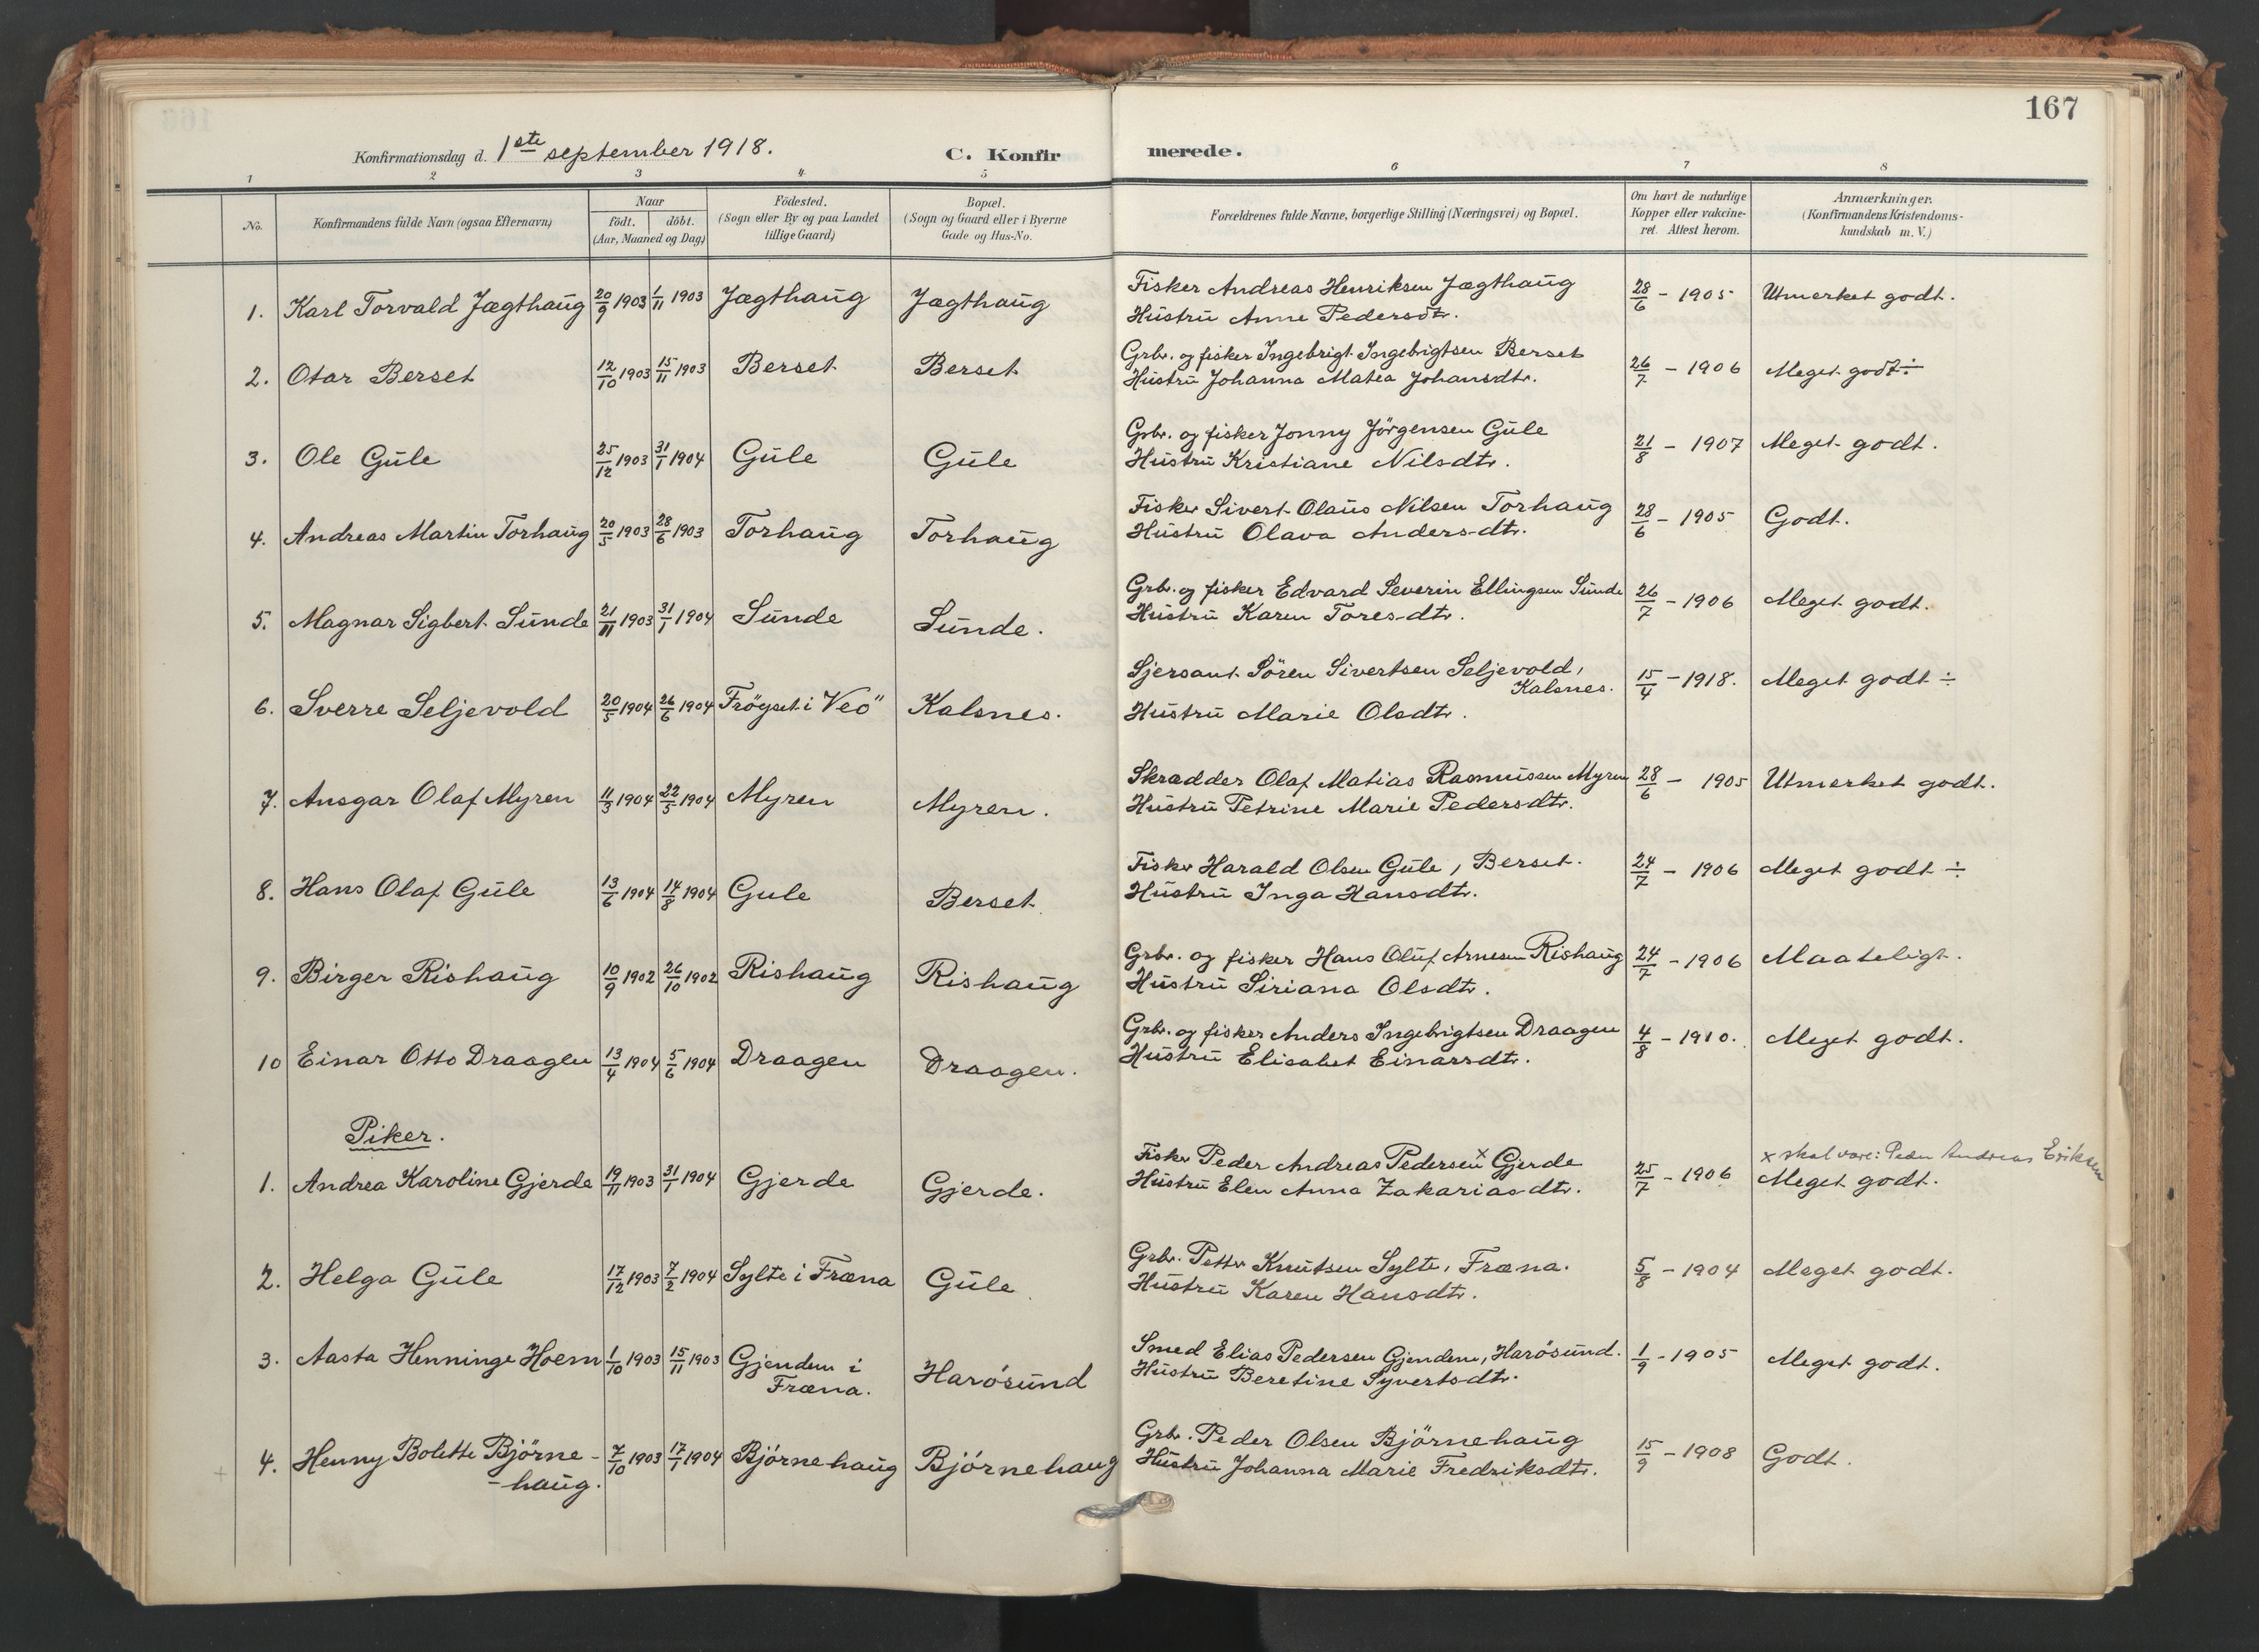 167
Konfirmationsdag d. 1ste september 1918.
C. Konfirmerede.
1 2 3 4 5 6 7 8
No.
Konfirmandens fulde Navn (ogsaa Efternavn)
Naar
födt. döbt.
(Aar, Maaned og Dag)
Födested.
(Sogn eller By og paa Landet
tillige Gaard)
Bopæl.
(Sogn og Gaard eller i Byerne
Gade og Hus-No.
Forældrenes fulde Navne, borgerlige Stilling (Næringsvei) og Bopæl.
Om havt de naturlige
Kopper eller vakcine-
ret. Attest herom.
Anmærkninger.
(Konfirmandens Kristendoms-
kundskab m. V.)
1. Karl Torvald Jægthaug 20/9 1903 1/11 1903 Jægthaug Jægthaug
Fisker Andreas Henriksen Jægthaug
Hustru Anne Pedersdtr.
28/6 - 1905 Utmerket godt.
2. Otar Berset 12/10 1903 15/11 1903 Berset Berset
Grbr. og fisker Ingebrigt Ingebrigtsen Berset
Hustru Johanna Matea Johansdtr.
26/7 - 1906 Meget godt ÷
3. Ole Gule 25/12 1903 31/1 1904 Gule Gule
Grbr. og fisker Jonny Jörgensen Gule
Hustru Kristiane Nilsdtr.
21/8 - 1907 Meget godt.
4. Andreas Martin Torhaug 20/5 1903 28/6 1903 Torhaug Torhaug
Fisker Sivert Olaus Nilsen Torhaug
Hustru Olava Andersdtr.
28/6 - 1905 Godt.
5. Magnar Sigbert Sunde 21/11 1903 31/1 1904 Sunde Sunde.
Grbr. og fisker Edvard Severin Ellingsen Sunde
Hustru Karen Toresdtr.
26/7 - 1906 Meget godt.
6. Sverre Seljevold 20/5 1904 26/6 1904 Fröyset i Veö Kalsnes.
Sjersant Sören Sivertsen Seljevold,
Kalsnes.
Hustru Marie Olsdtr.
15/4 - 1918. Meget godt ÷
7. Ansgar Olaf Myren 11/3 1904 22/5 1904 Myren Myren.
Skrædder Olaf Matias Rasmussen Myren
Hustru Petrine Marie Pedersdtr.
28/6 - 1905 Utmerket godt.
8. Hans Olaf Gule 13/6 1904 14/8 1904 Gule Berset
Fisker Harald Olsen Gule, Berset.
Hustru Inga Hansdtr.
24/7 - 1906 Meget godt ÷
9. Birger Rishaug 10/9 1902 26/10 1902 Rishaug Rishaug
Grbr. og fisker Hans Oluf Arnesen Rishaug
Hustru Siriana Olsdtr.
24/7 - 1906 Maateligt.
10 Einar Otto Draagen 13/4 1904 5/6 1904 Draagen Draagen.
Grbr. og fisker Anders Ingebrigtsen Draagen
Hustru Elisabet Einarsdtr.
4/8 - 1910. Meget godt.
Piker.
1. Andrea Karoline Gjerde 19/11 1903 31/1 1904 Gjerde Gjerde.
Fisker Peder Andreas Pedersen x Gjerde
Hustru Elen Anna Zakariasdtr.
25/7 - 1906
x skal være: Peder Andreas Eriksen
Meget godt.
2. Helga Gule 17/12 1903 7/2 1904 Sylte i Fræna Gule
Grbr. Petter Knutsen Sylte, Fræna.
Hustru Karen Hansdtr.
5/8 - 1904 Meget godt.
3. Aasta Henninge Hoem 1/10 1903 15/11 1903 Gjendem i
Fræna.
Harösund
Smed Elias Pedersen Gjendem, Harösund.
Hustru Beretine Syvertsdtr.
1/9 - 1905 Meget godt.
+ 4. Henny Bolette Björne-
-haug.
7/10 1903 17/1 1904 Björnehaug Björnehaug
Grbr. Peder Olsen Björnehaug
Hustru Johanna Marie Fredriksdtr.
15/9 - 1908 Godt.